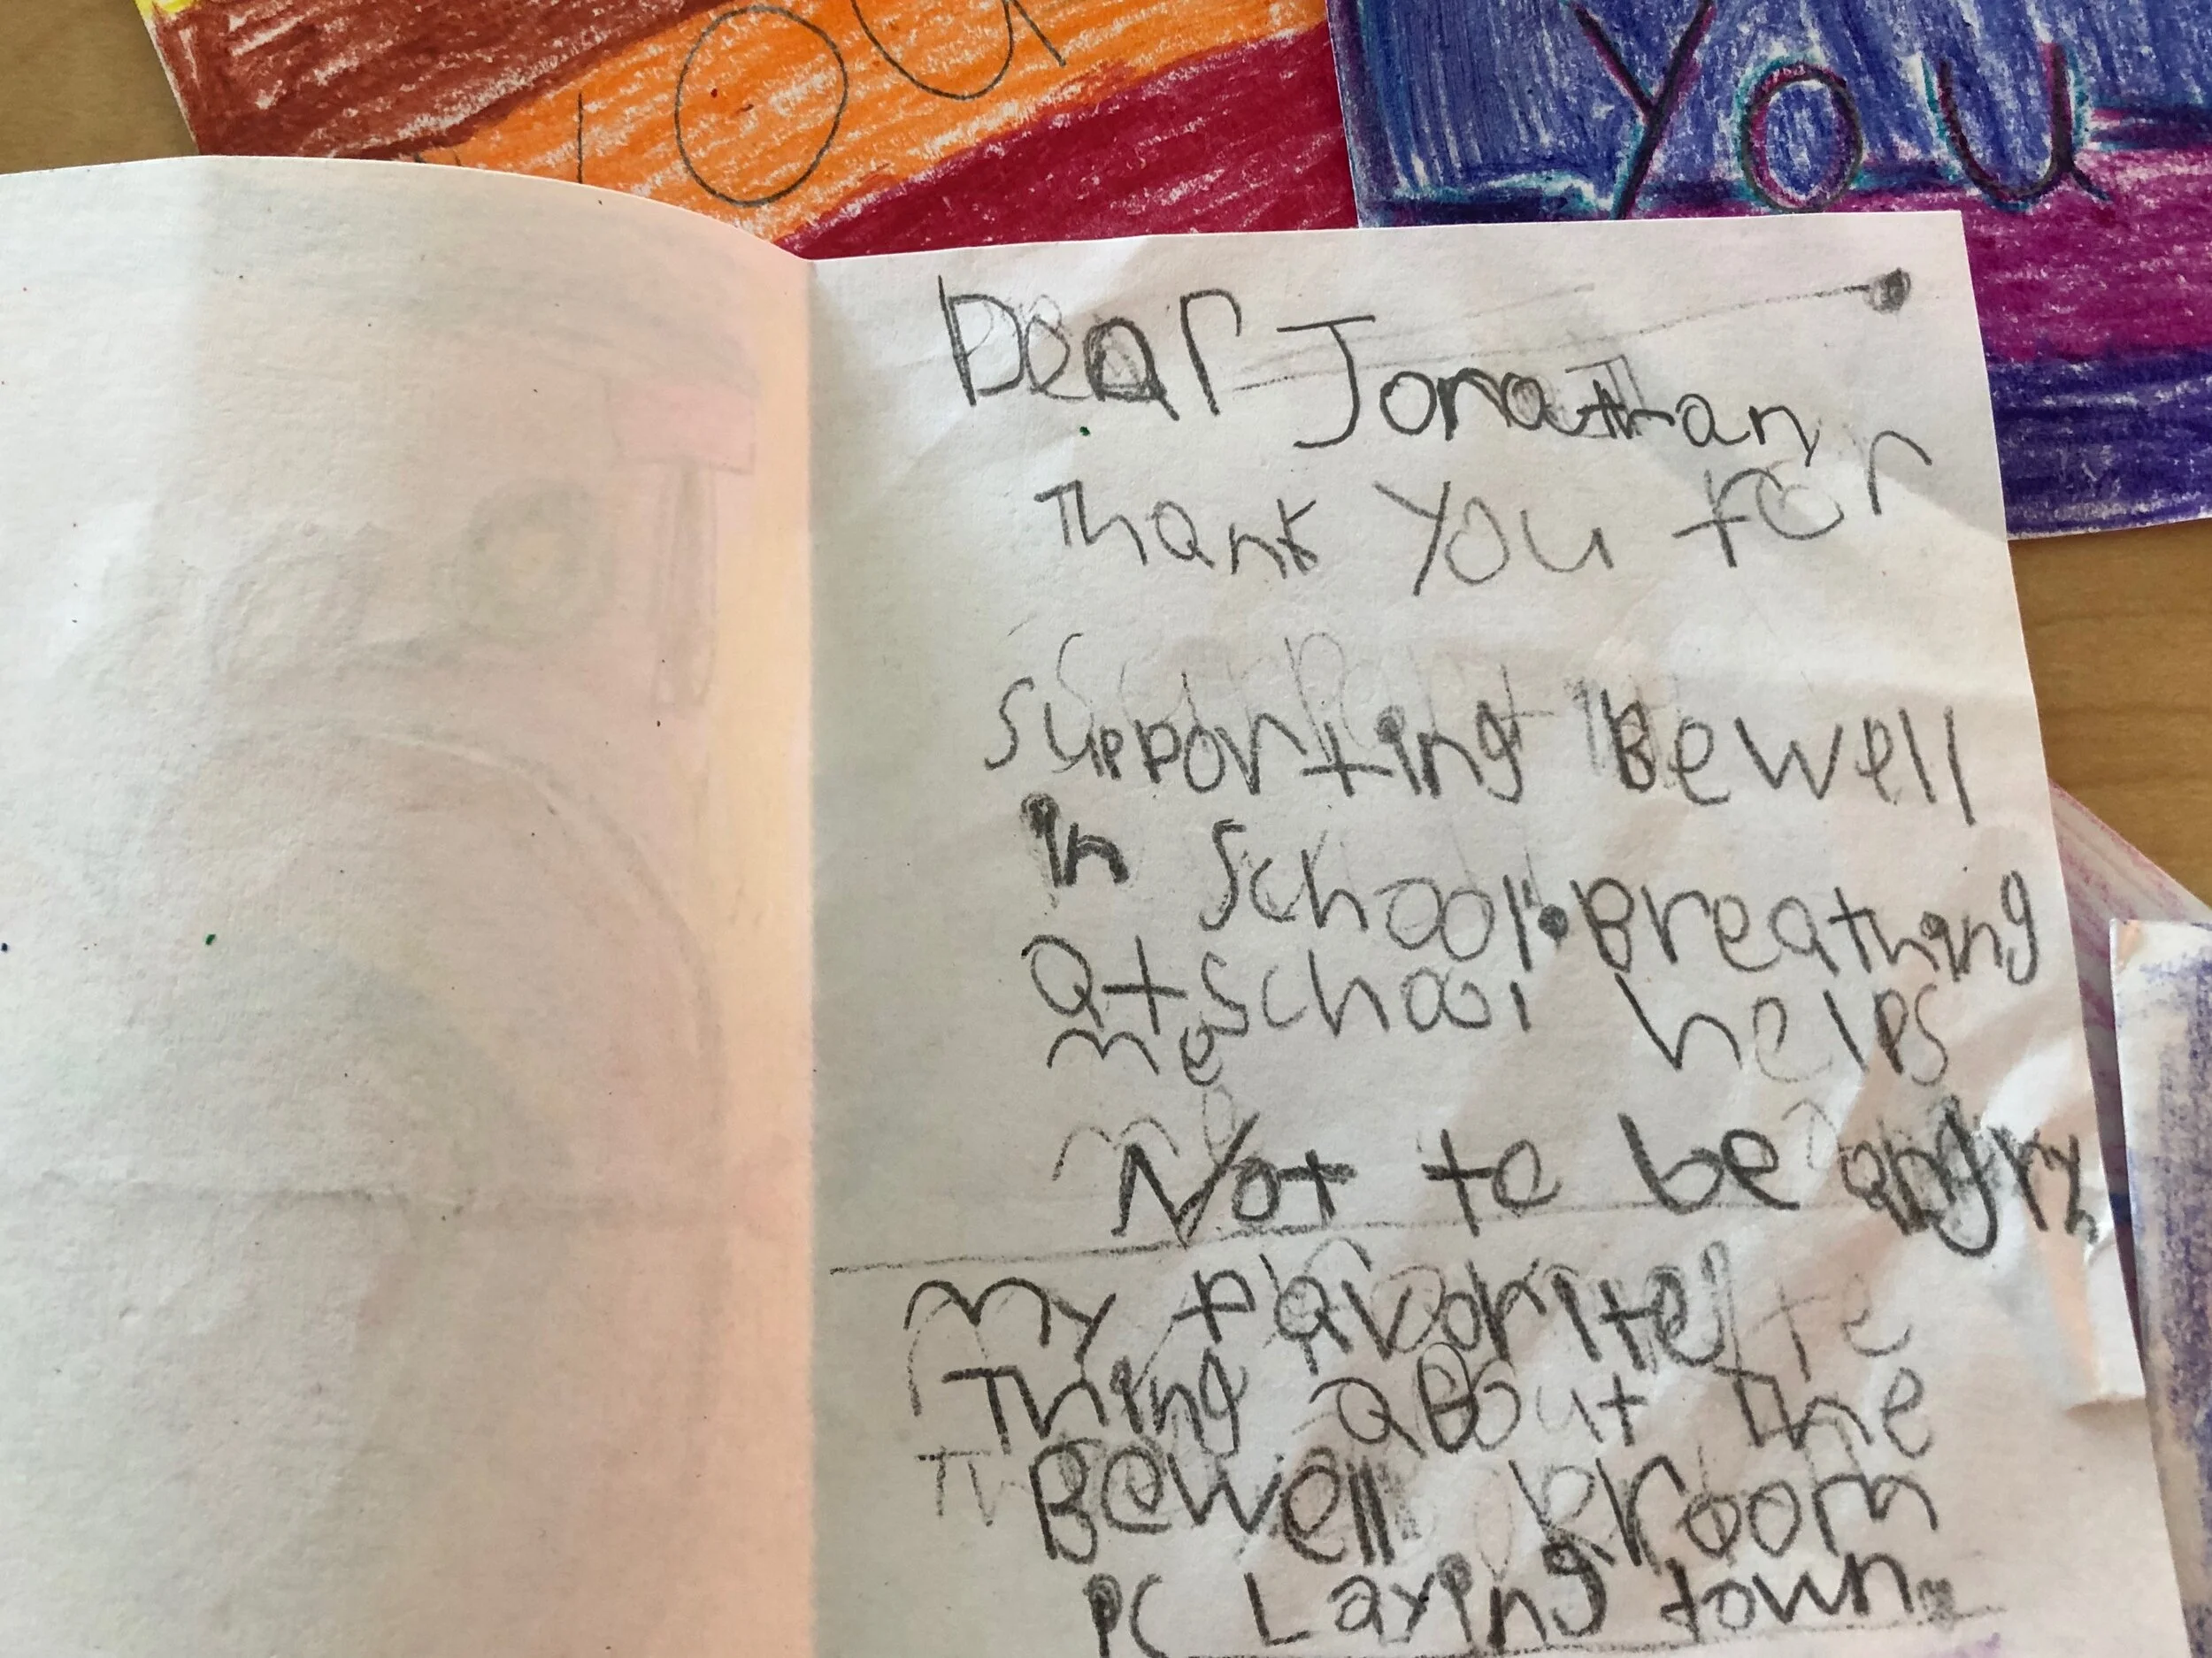 YOU
You
Dear Jonathan
Thank you for
supporting Be Well
in school. Breathing
at school helps
me
Not to be angry.
my favorite
Thing about the
Be Well room
is Laying town.